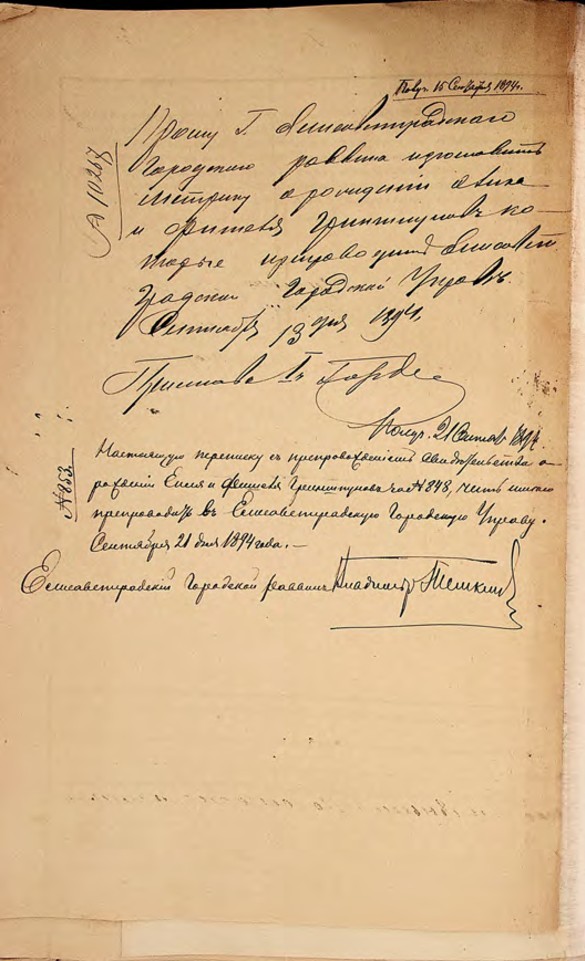 Получ. 15 Сентября 1894 г.
№ 10267
Прошу Г. Елисаветградскаго
Городского раввина
метрику о рождении
и Фишеля Гриншпуновъ ко-
торые препроводить Елисавет
градской Городской Управѣ.
Сентября 13 дня 1894
Пристава I
Получ. 21 Сентяб 1894
№ 853.
Настоящую переписку съ препровожденіемъ свидѣтельства о
рожденіи Еселя и Фишеля Гринштуновъ за № 848, честь имѣю
препроводить въ Елисаветградскую Городскую Управу.
Сентября 21 дня 1894 года. —
Елисаветградскій Городской раввинъ Владимиръ Темкинъ